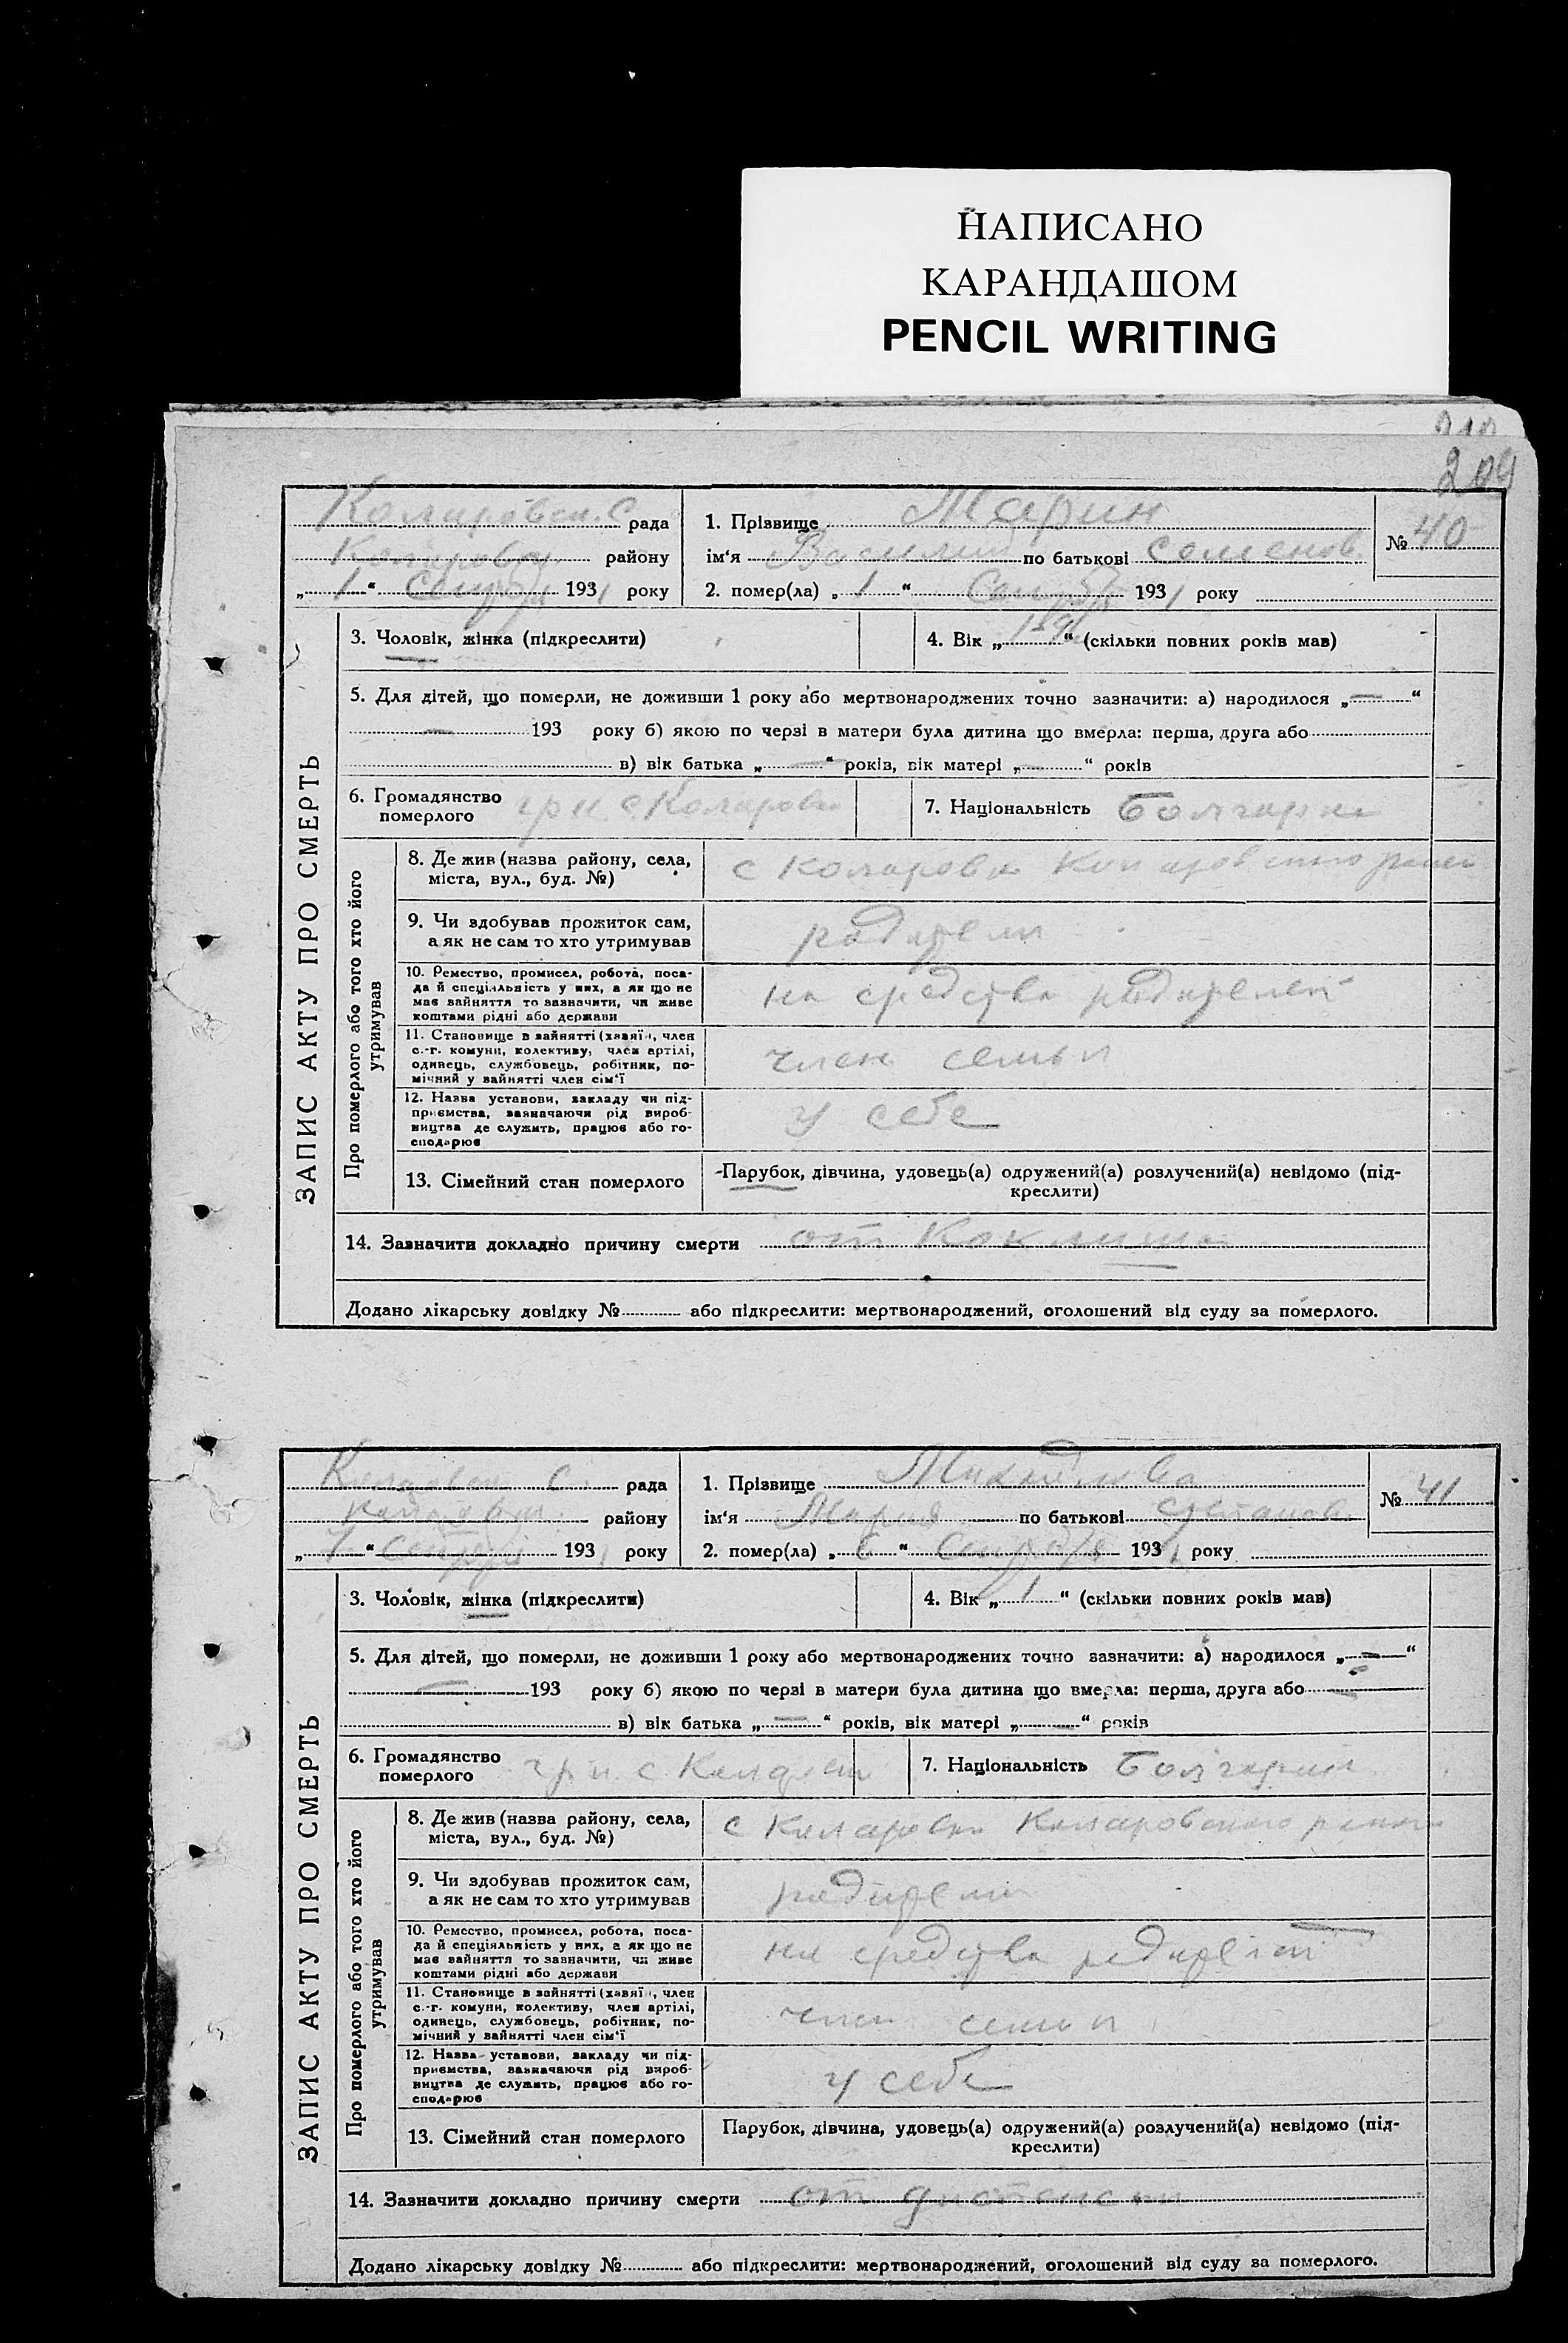 НАПИСАНО
КАРАНДАШОМ
PENCIL WRITING
209
ЗАПИС АКТУ ПРО СМЕРТЬ
Коларовск. С рада
Коларовск. району
„1“ Сентября 1931 року
1. Прізвище Марин
ім‘я Василий по батькові Семенов.
№ 40
2. помер(ла) „1“ Сентября 1931 року
3. Чоловік, жінка (підкреслити)
4. Вік „ “ (скільки повних років мав)
5. Для дітей, що померли, не доживши 1 року або мертвонароджених точно зазначити: а) народилося „—“
— 193 року б) якою по черзі в матери була дитина що вмерла: перша, друга або
в) вік батька „—“ років, вік матері „—“ років
6. Громадянство
померлого гр н с Коларовки
7. Національність Болгарин
Про померлого або того хто його
утримував
8. Де жив (назва району, села,
міста, вул., буд. №)
с Коларовка Коларовского района
9. Чи здобував прожиток сам,
а як не сам то хто утримував
родители
10. Ремество, промисел, робота, поса-
да й спеціяльність у них, а як що не
має зайняття то зазначити, чи живе
коштами рідні або держави
на средства родителей
11. Становище в зайнятті (хазяїн, член
с.-г. комуни, колективу, член артілі,
одинець, службовець, робітник, по-
мічний у зайнятті член сім‘ї
член семьи
12. Назва установи, закладу чи під-
приємства, зазначаючи рід вироб-
ництва де служить, працює або го-
сподарює
у себе
13. Сімейний стан померлого
Парубок, дівчина, удовець(а) одружений(а) розлучений(а) невідомо (під-
креслити)
14. Зазначити докладно причину смерти от Коклюша
Додано лікарську довідку № або підкреслити: мертвонароджений, оголошений від суду за померлого.
ЗАПИС АКТУ ПРО СМЕРТЬ
Коларовск С. рада
Коларовск. району
„7“ Сентября 1931 року
1. Прізвище
ім‘я Мария по батькові Степанов.
№ 41
2. помер(ла) „6“ Сентября 1931 року
3. Чоловік, жінка (підкреслити)
4. Вік „1“ (скільки повних років мав)
5. Для дітей, що померли, не доживши 1 року або мертвонароджених точно зазначити: а) народилося „—“
— 193 року б) якою по черзі в матери була дитина що вмерла: перша, друга або —
в) вік батька „—“ років, вік матері „—“ років
6. Громадянство
померлого гр н. с.
7. Національність Болгарин
Про померлого або того хто його
утримував
8. Де жив (назва району, села,
міста, вул., буд. №)
с Коларовка Коларовского района
9. Чи здобував прожиток сам,
а як не сам то хто утримував
родители
10. Ремество, промисел, робота, поса-
да й спеціяльність у них, а як що не
має зайняття то зазначити, чи живе
коштами рідні або держави
на средства родителей
11. Становище в зайнятті (хазяїн, член
с.-г. комуни, колективу, член артілі,
одинець, службовець, робітник, по-
мічний у зайнятті член сім‘ї
член семьи
12. Назва установи, закладу чи під-
приємства, зазначаючи рід вироб-
ництва де служить, працює або го-
сподарює
у себе
13. Сімейний стан померлого
Парубок, дівчина, удовець(а) одружений(а) розлучений(а) невідомо (під-
креслити)
14. Зазначити докладно причину смерти от
Додано лікарську довідку № або підкреслити: мертвонароджений, оголошений від суду за померлого.